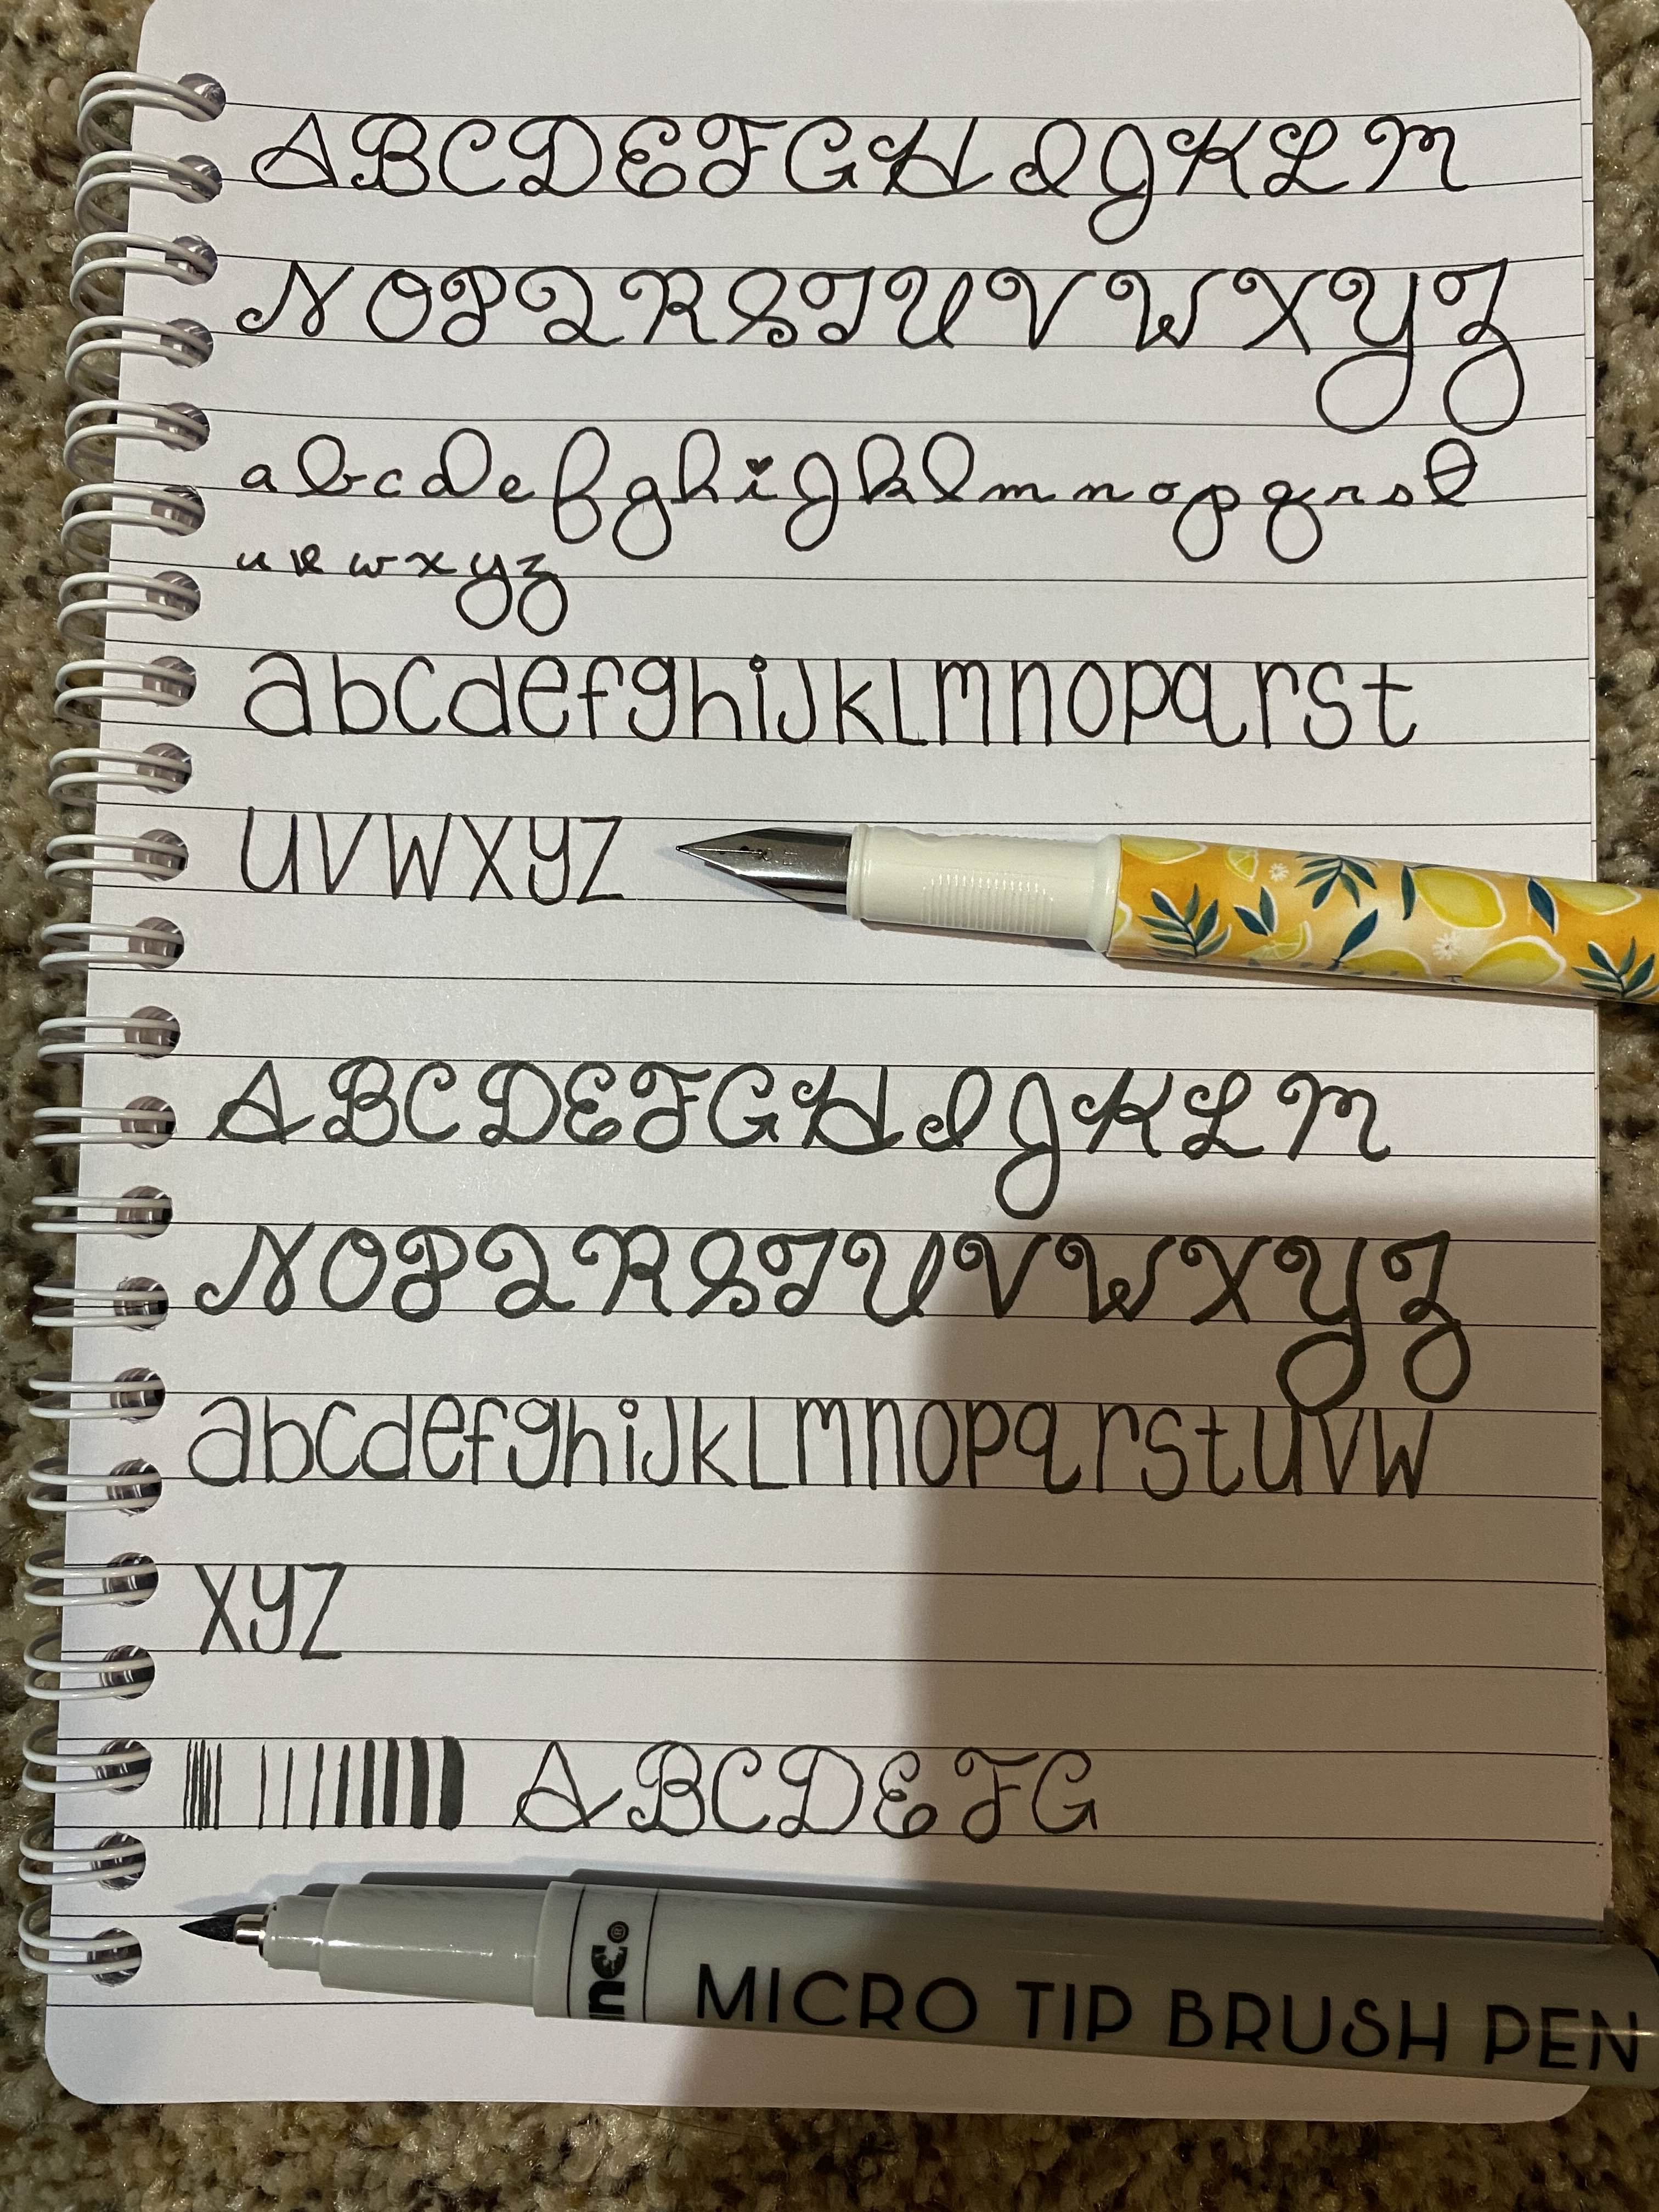 ABCDEFGHIJKLM
NOPQRSTUVWXYZ
abcdefghijklmnopqrst
uvwxyz
abcdefghijklmnopqrst
uvwxyz
ABCDEFGHIJKLM
NOPQRSTUVWXYZ
abcdefghijklmnopqrstuvw
xyz
ABCDEFG
inc.® MICRO TIP BRUSH PEN